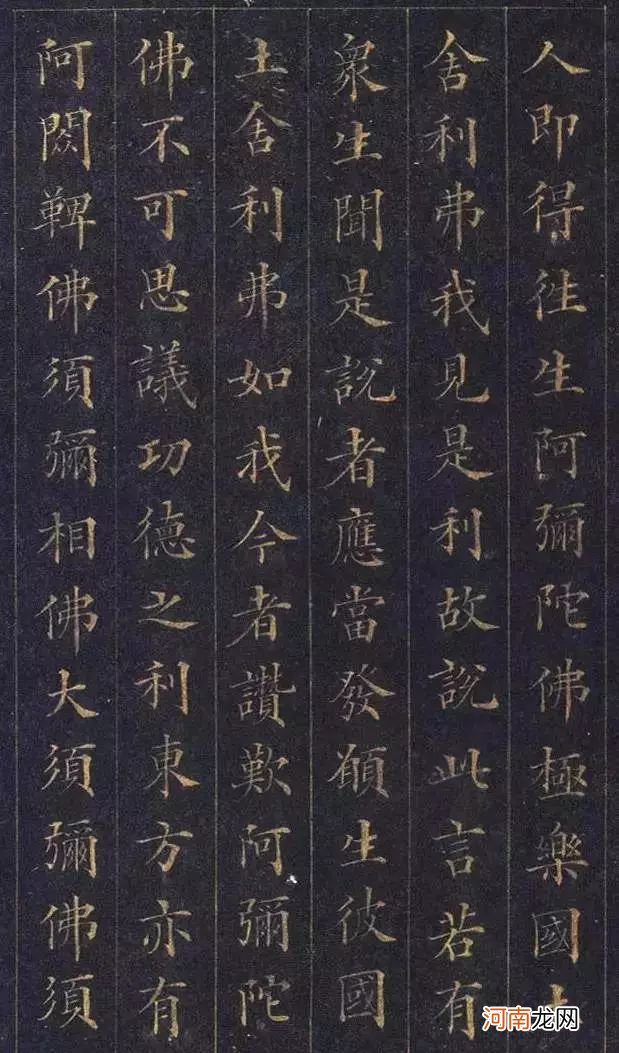 人即得往生阿彌陀佛極樂國土
舍利弗我見是利故說此言若有
衆生聞是說者應當發願生彼國
土舍利弗如我今者讚歎阿彌陀
佛不可思議功德之利東方亦有
阿閦鞞佛須彌相佛大須彌佛須
河南龙网